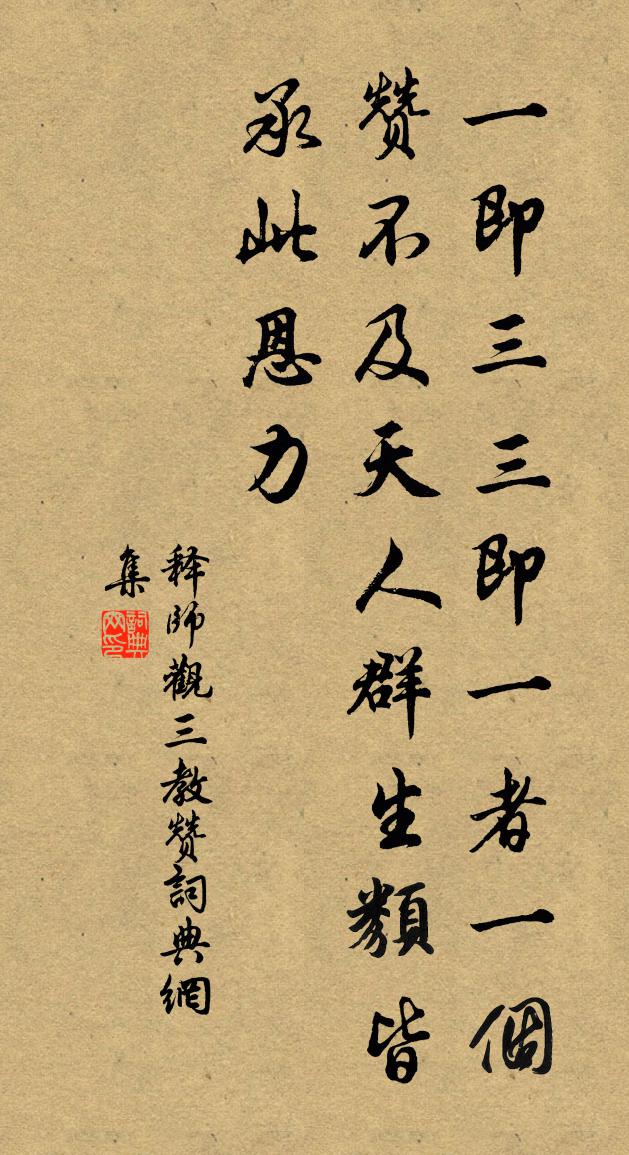 一即三三即一者一個
贊不及天人群生類皆
承此恩力
释師觀三教贊詞典網
集
詞典
网印